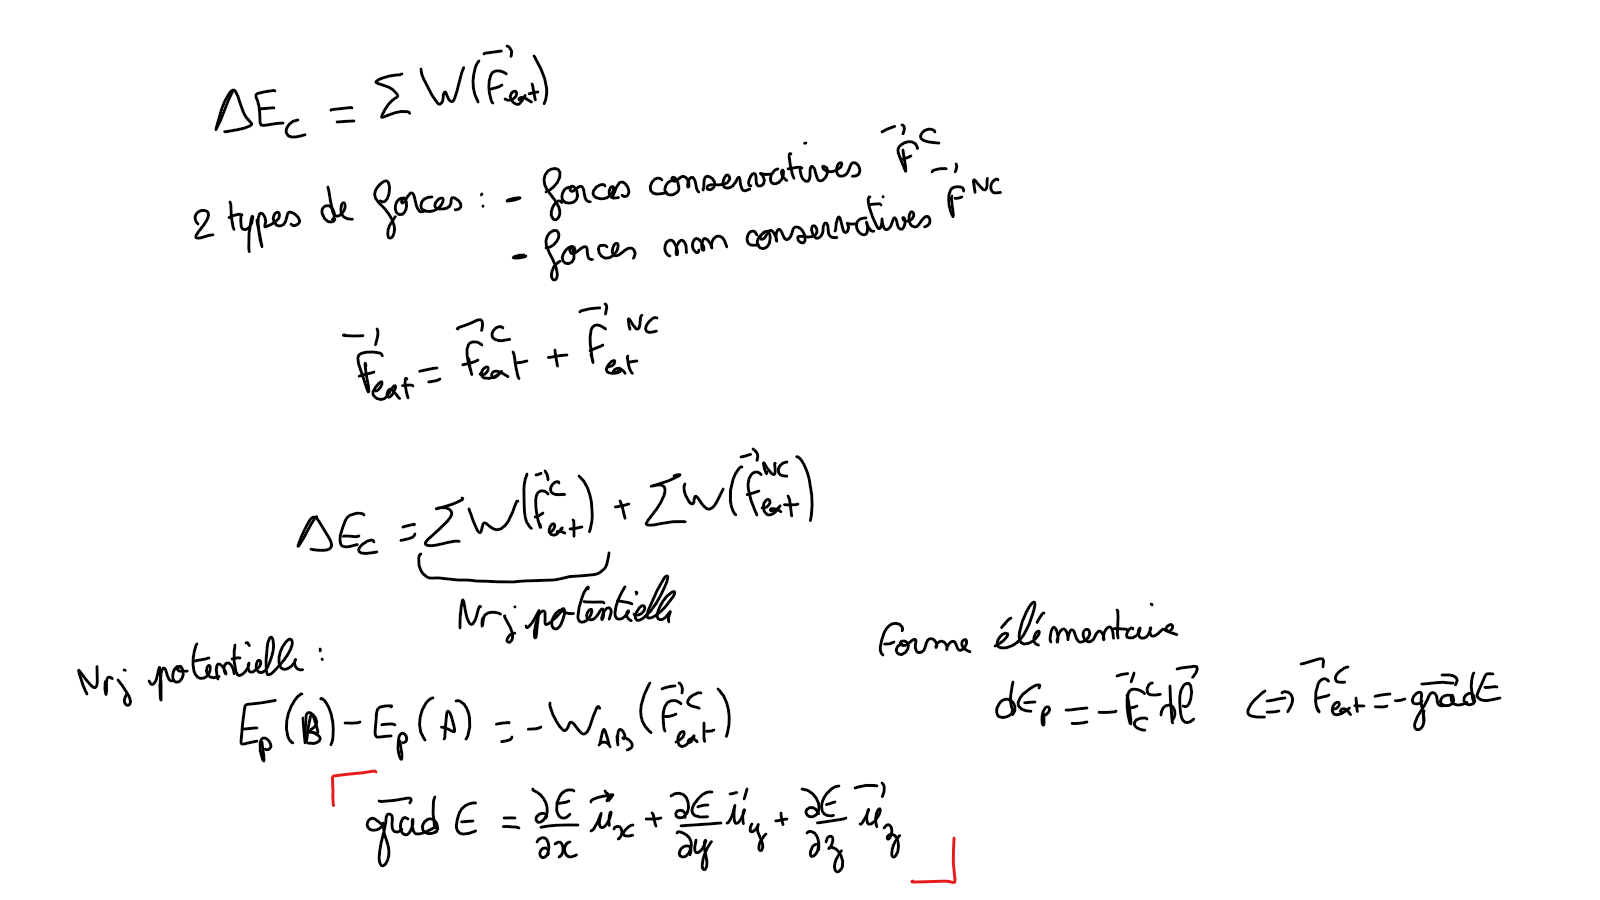 ΔE_c = Σ W(F⃗_ext)
2 types de forces : - forces conservatives F⃗^C
- forces non conservatives F⃗^NC
F⃗_ext = F⃗_ext^C + F⃗_ext^NC
ΔE_c = Σ W(F⃗_ext^C) + Σ W(F⃗_ext^NC)
Nrj potentielle
Nrj potentielle :
E_p(B) - E_p(A) = - W_AB(F⃗_ext^C)
Forme élémentaire
dE_p = - F⃗_c^C dl⃗ <=> F⃗_ext^C = - grad⃗ E
grad⃗ E = ∂E/∂x u⃗_x + ∂E/∂y u⃗_y + ∂E/∂z u⃗_z